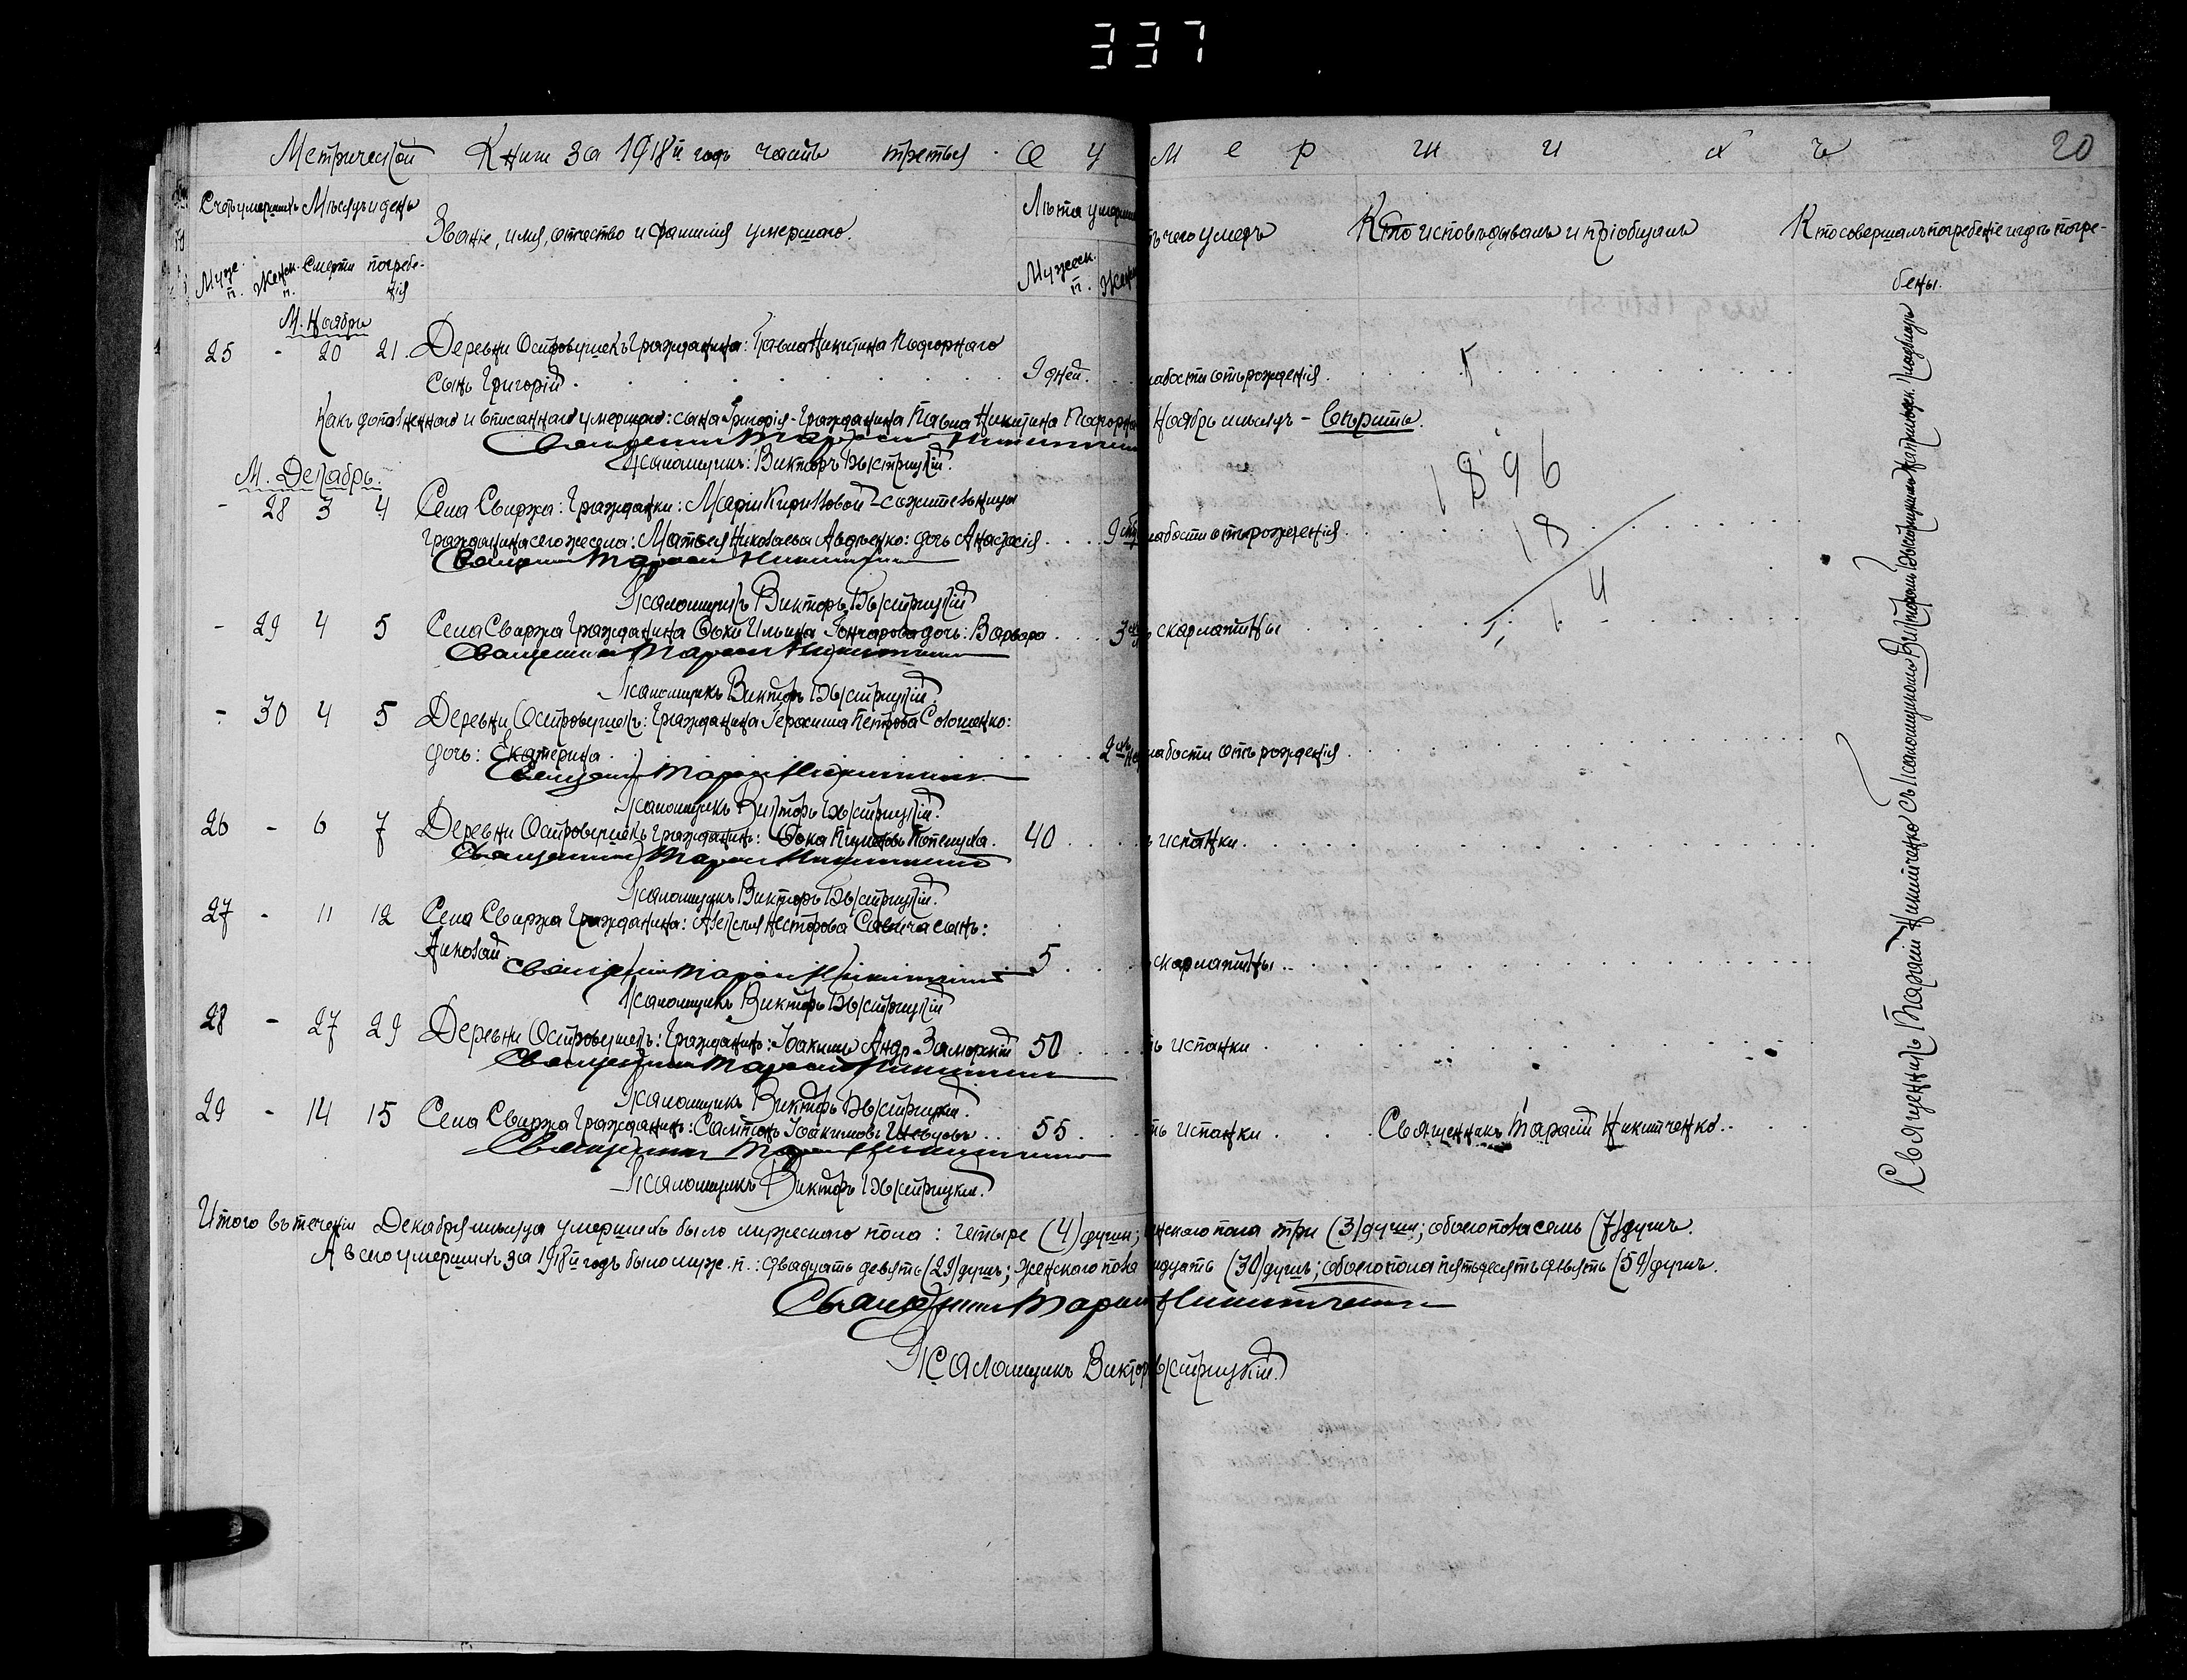 337
Метрической Книги за 1918й годъ часть третья О У м е р ш и х ъ 20
Счетъ умершихъ Мѣсяцъ и день Лѣта умерш
Званіе, имя, отчество и фамилія умершаго. ъ чего умеръ Кто исповѣдывалъ и пріобщалъ Кто совершалъ погребеніе и гдѣ погре-
бены.
Муже. п. Женск. п. Смерти погребе-
нія Мужеск. п. Жен
М. Ноябрь
25 - 20 21. Деревни Островушекъ Гражданина: Павла Никитина Подгорнаго
Сынъ Григорій 9 дней. лабости отъ рожденія.
Какъ дополненнаго и вписаннаго умершаго: сына Григорія - Гражданина Павла Никитина Подгорна Ноябрь мѣсяцъ - вѣрить.
Священникъ Тарасій Никитченко
Псаломщикъ: Викторъ Быстрицкій.
М. Декабрь.
1896
18
- 28 3 4 Села Свиржа: Гражданки: Маріи Кирилловой - сожительницы
Гражданина сего же села: Матвея Николаева Авдѣенко: дочь Анастасія 9 лабости отъ рожденія
Священникъ Тарасій Никитченко
Псаломщикъ Викторъ Быстрицкій
- 29 4 5 Села Свиржа Гражданина Фоки Ильина Гончарова дочь: Варвара 3 скарлатины
Священникъ Тарасій Никитченко
Псаломщикъ Викторъ Быстрицкій
- 30 4 5 Деревни Островушекъ: Гражданина Герасима Петрова Соломенко:
дочь: Екатерина 2 лабости отъ рожденія
Священникъ Тарасій Никитченко
Псаломщикъ Викторъ Быстрицкій.
26 - 6 7 Деревни Островушекъ Гражданинъ: Фока 40 испанки.
Священникъ Тарасій Никитченко
Псаломщикъ Викторъ Быстрицкій.
27 - 11 12 Села Свиржа Гражданина: Алексія Нестерова Савича сынъ:
Николай. 5 скарлатины
Священникъ Тарасій Никитченко
Псаломщикъ Викторъ Быстрицкій
28 - 27 29 Деревни Островушекъ: Гражданинъ: Іоакимъ Андр. Заморскій 50 ъ испанки
Священникъ Тарасій Никитченко
Псаломщикъ Викторъ Быстрицкій.
29 - 14 15 Села Свиржа Гражданинъ: Сампсонъ Іоакимовъ Шевцовъ 55 тъ испанки Священникъ Тарасій Никитченко
Священникъ Тарасій Никитченко
Псаломщикъ Викторъ Быстрицкій.
Священникъ Тарасій Никитченко съ Псаломщикомъ Викторомъ Быстрицкимъ
Итого въ теченіи Декабря мѣсяца умершихъ было мужескаго пола: четыре (4) души; нскаго пола три (3) души; обоего пола семь (7) душъ.
А всего умершихъ за 1918й годъ было муж. п.: двадцать девять (29) душъ; женскаго пола идцать (30) душъ; обоего пола пятьдесятъ девять (59) душъ.
Священникъ Тарасій Никитченко
Псаломщикъ Викторъ Быстрицкій